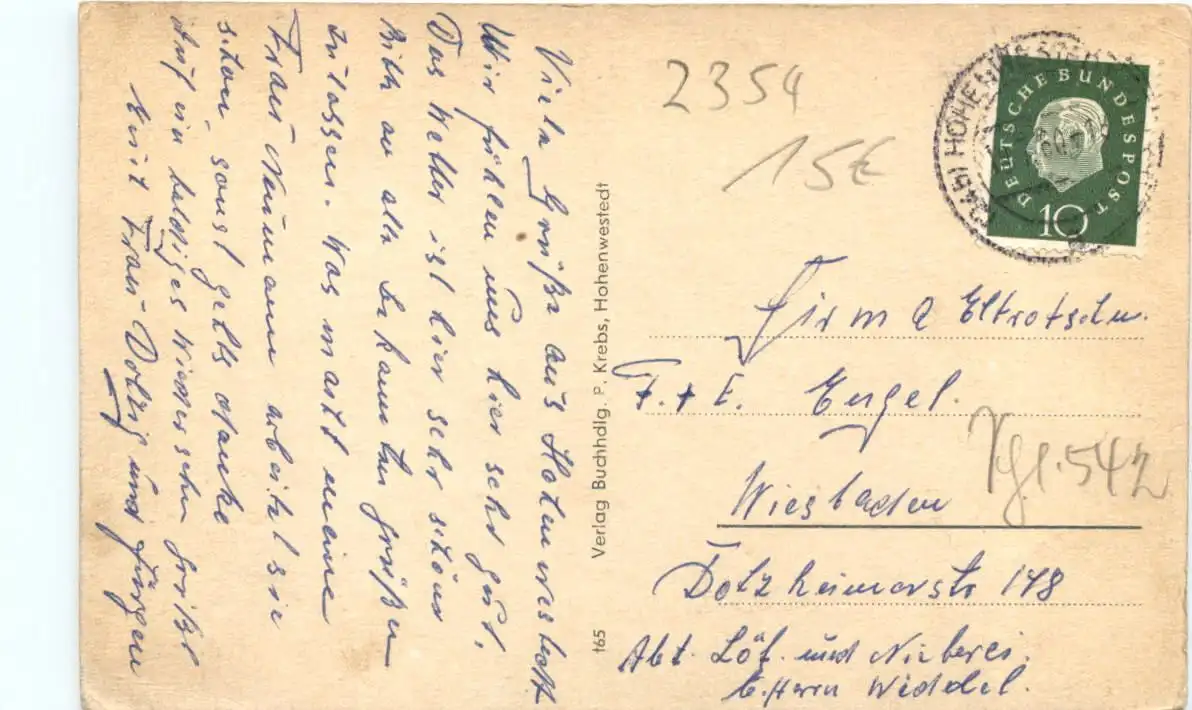 Viele Grüße aus Hohenwestedt
Wir fühlen uns hier sehr gut,
Das Wetter ist hier sehr schöner
Bitte an alle Bekannten grüßen
zu lassen. Was macht meine
Frau Neumann arbeitet sie
schon, sonst gehts danke
Auf ein baldiges Wiedersehn grüßt
Ernst Frau Dolzig und Jürgen
Verlag Buchhdlg. P. Krebs, Hohenwestedt
t65
2354
15€
HOHENWESTEDT
DEUTSCHE BUNDESPOST
10
Firma Eltrotschn.
F. + E. Engel.
Wiesbaden
Dotzheimerstr 148
Abt. Löt. und Nieterei.
b. Herrn Widdel.
Kgl. 542